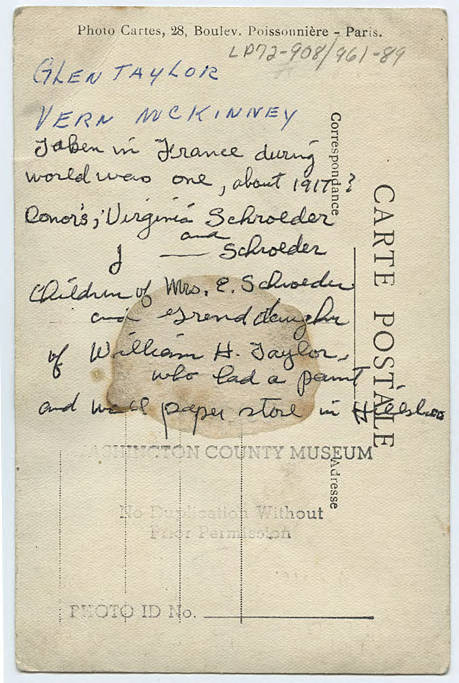 Photo Cartes, 28, Boulev. Poissonnière - Paris.
LP72-908/961-89
GLEN TAYLOR
VERN MCKINNEY
Taken in France during
world war one, about 1917-?
Donor's; Virginia Schroeder
and
J — Schroeder
Children of Mrs. E. Schroeder
and Grend daughr
of William H. Taylor,
who had a paint
and wall paper store in Hillsboro
CARTE POSTALE
Correspondance
Adresse
WASHINGTON COUNTY MUSEUM
No Duplication Without
Prior Permission
PHOTO ID No.